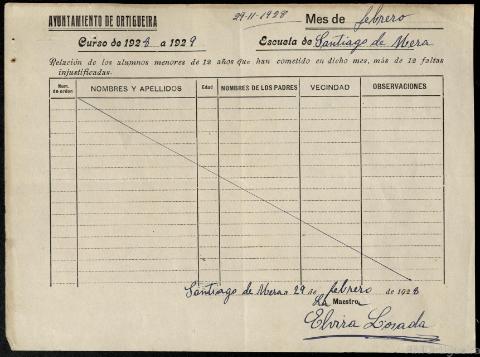 AYUNTAMIENTO DE ORTIGUEIRA
29-11-1928
Mes de febrero
Curso de 1928 a 1929
Escuela de Santiago de Mera
Relación de los alumnos menores de 12 años que han cometido en dicho mes, más de 12 faltas
injustificadas.
Núm. de orden NOMBRES Y APELLIDOS Edad NOMBRES DE LOS PADRES VECINDAD OBSERVACIONES
Santiago de Mera a 29 de febrero de 1928
La Maestra
Elvira Losada